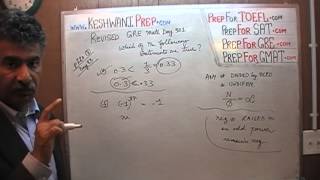 www.KESHWANIPREP.com
REVISED GRE Math Day 301
Which of the following
statements are true?
0.3 < 1/3 = 0.33
0.3 < .33
= -1
PREPFORTOEFL.com
PREPFOR SAT.com
PREPFORGRE.com
PREPFORGMAT.com
ANY # DIVIDED BY ZERO
N/0 = ∝
neg # RAISED to
an odd power
remains neg.